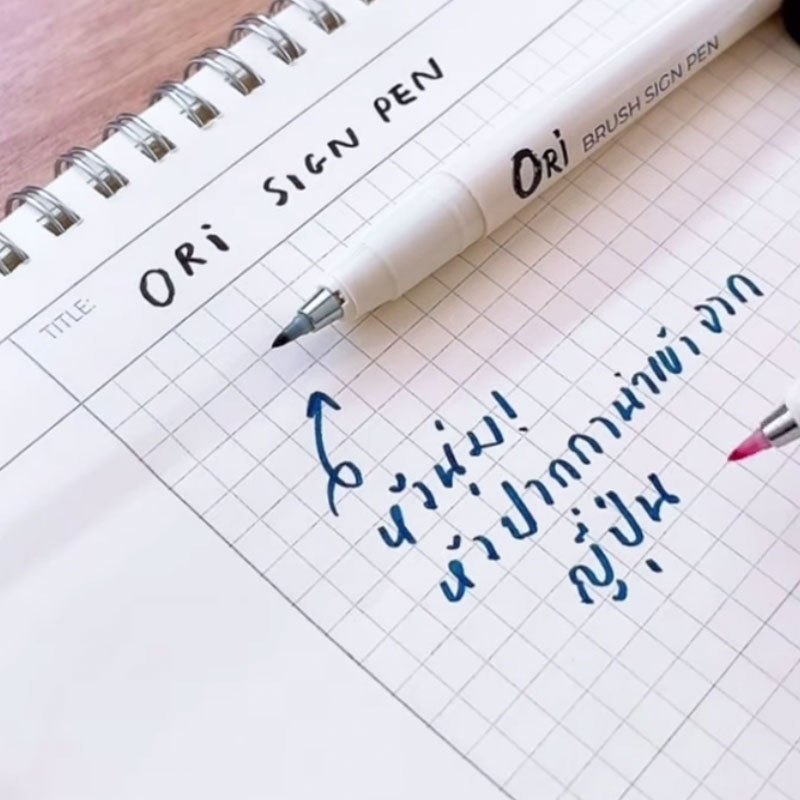 TITLE: ORi SIGN PEN
ORi BRUSH SIGN PEN
หัวนุ่ม!
หัวปากกานำเข้าจาก
ญี่ปุ่น